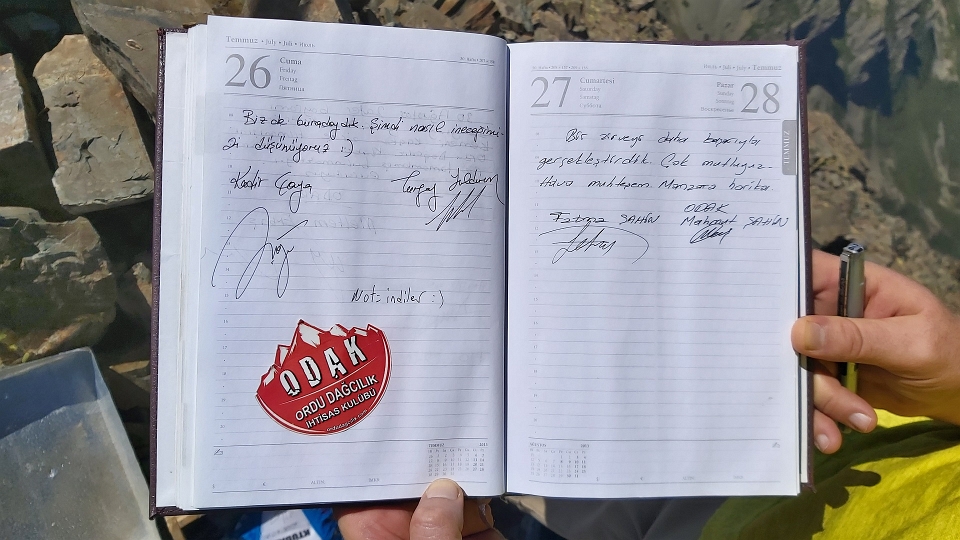 Temmuz • July • Juli • Июль
26
Cuma
Friday
Freitag
Пятница
Biz de buradaydık. Şimdi nasıl ineceğimi-
zi düşünüyoruz :)
Kadir Çaya
Turgay Yıldırım
Not: indiler :)
ODAK
ORDU DAĞCILIK
İHTİSAS KULÜBÜ
Июль • Juli • July • Temmuz
27
Cumartesi
Saturday
Samstag
Суббота
Pazar
Sunday
Sonntag
Воскресенье
28
TEMMUZ
Bir zirveyi daha başarıyla
gerçekleştirdik. Çok mutluyuz.
Hava muhteşem. Manzara harika.
Fatma ŞAHİN
ODAK
Mahmut ŞAHİN